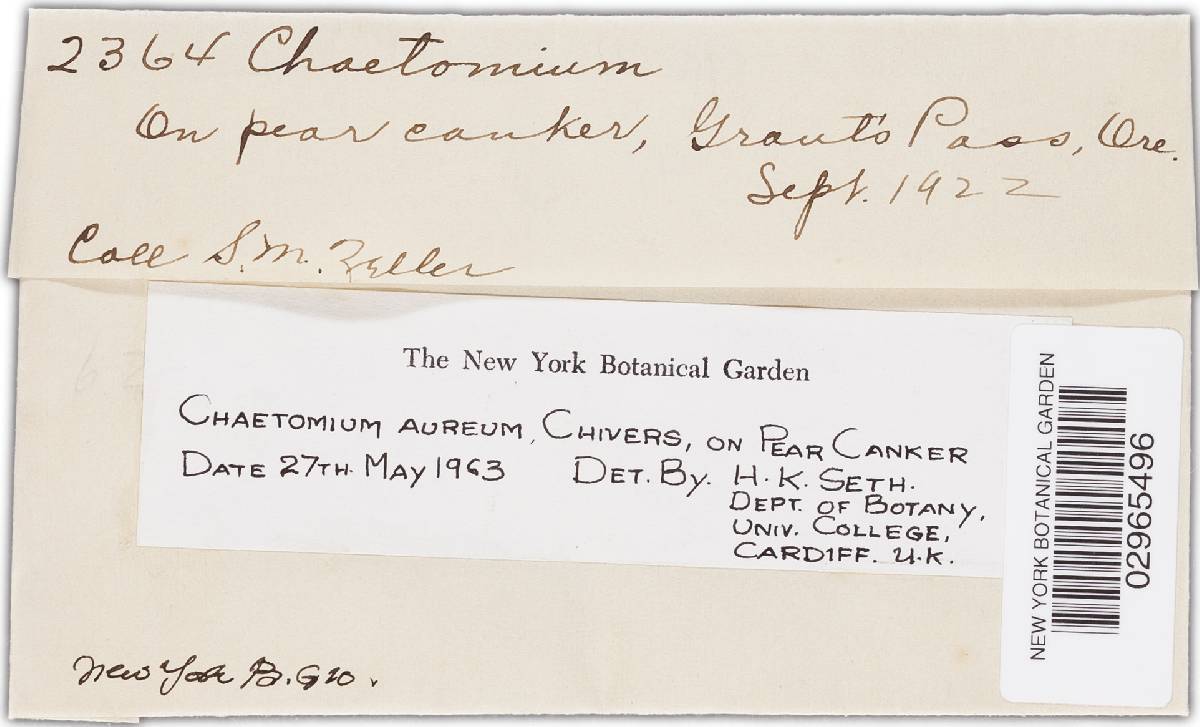 2364 Chaetomium
On pear canker, Grant's Pass, Ore.
Sept. 1922
Coll S.M. Zeller
The New York Botanical Garden
CHAETOMIUM AUREUM, CHIVERS, ON PEAR CANKER
DATE 27TH. MAY 1963 DET. BY. H. K. SETH.
DEPT. OF BOTANY,
UNIV. COLLEGE,
CARDIFF. U.K.
NEW YORK BOTANICAL GARDEN
02965496
New York B.